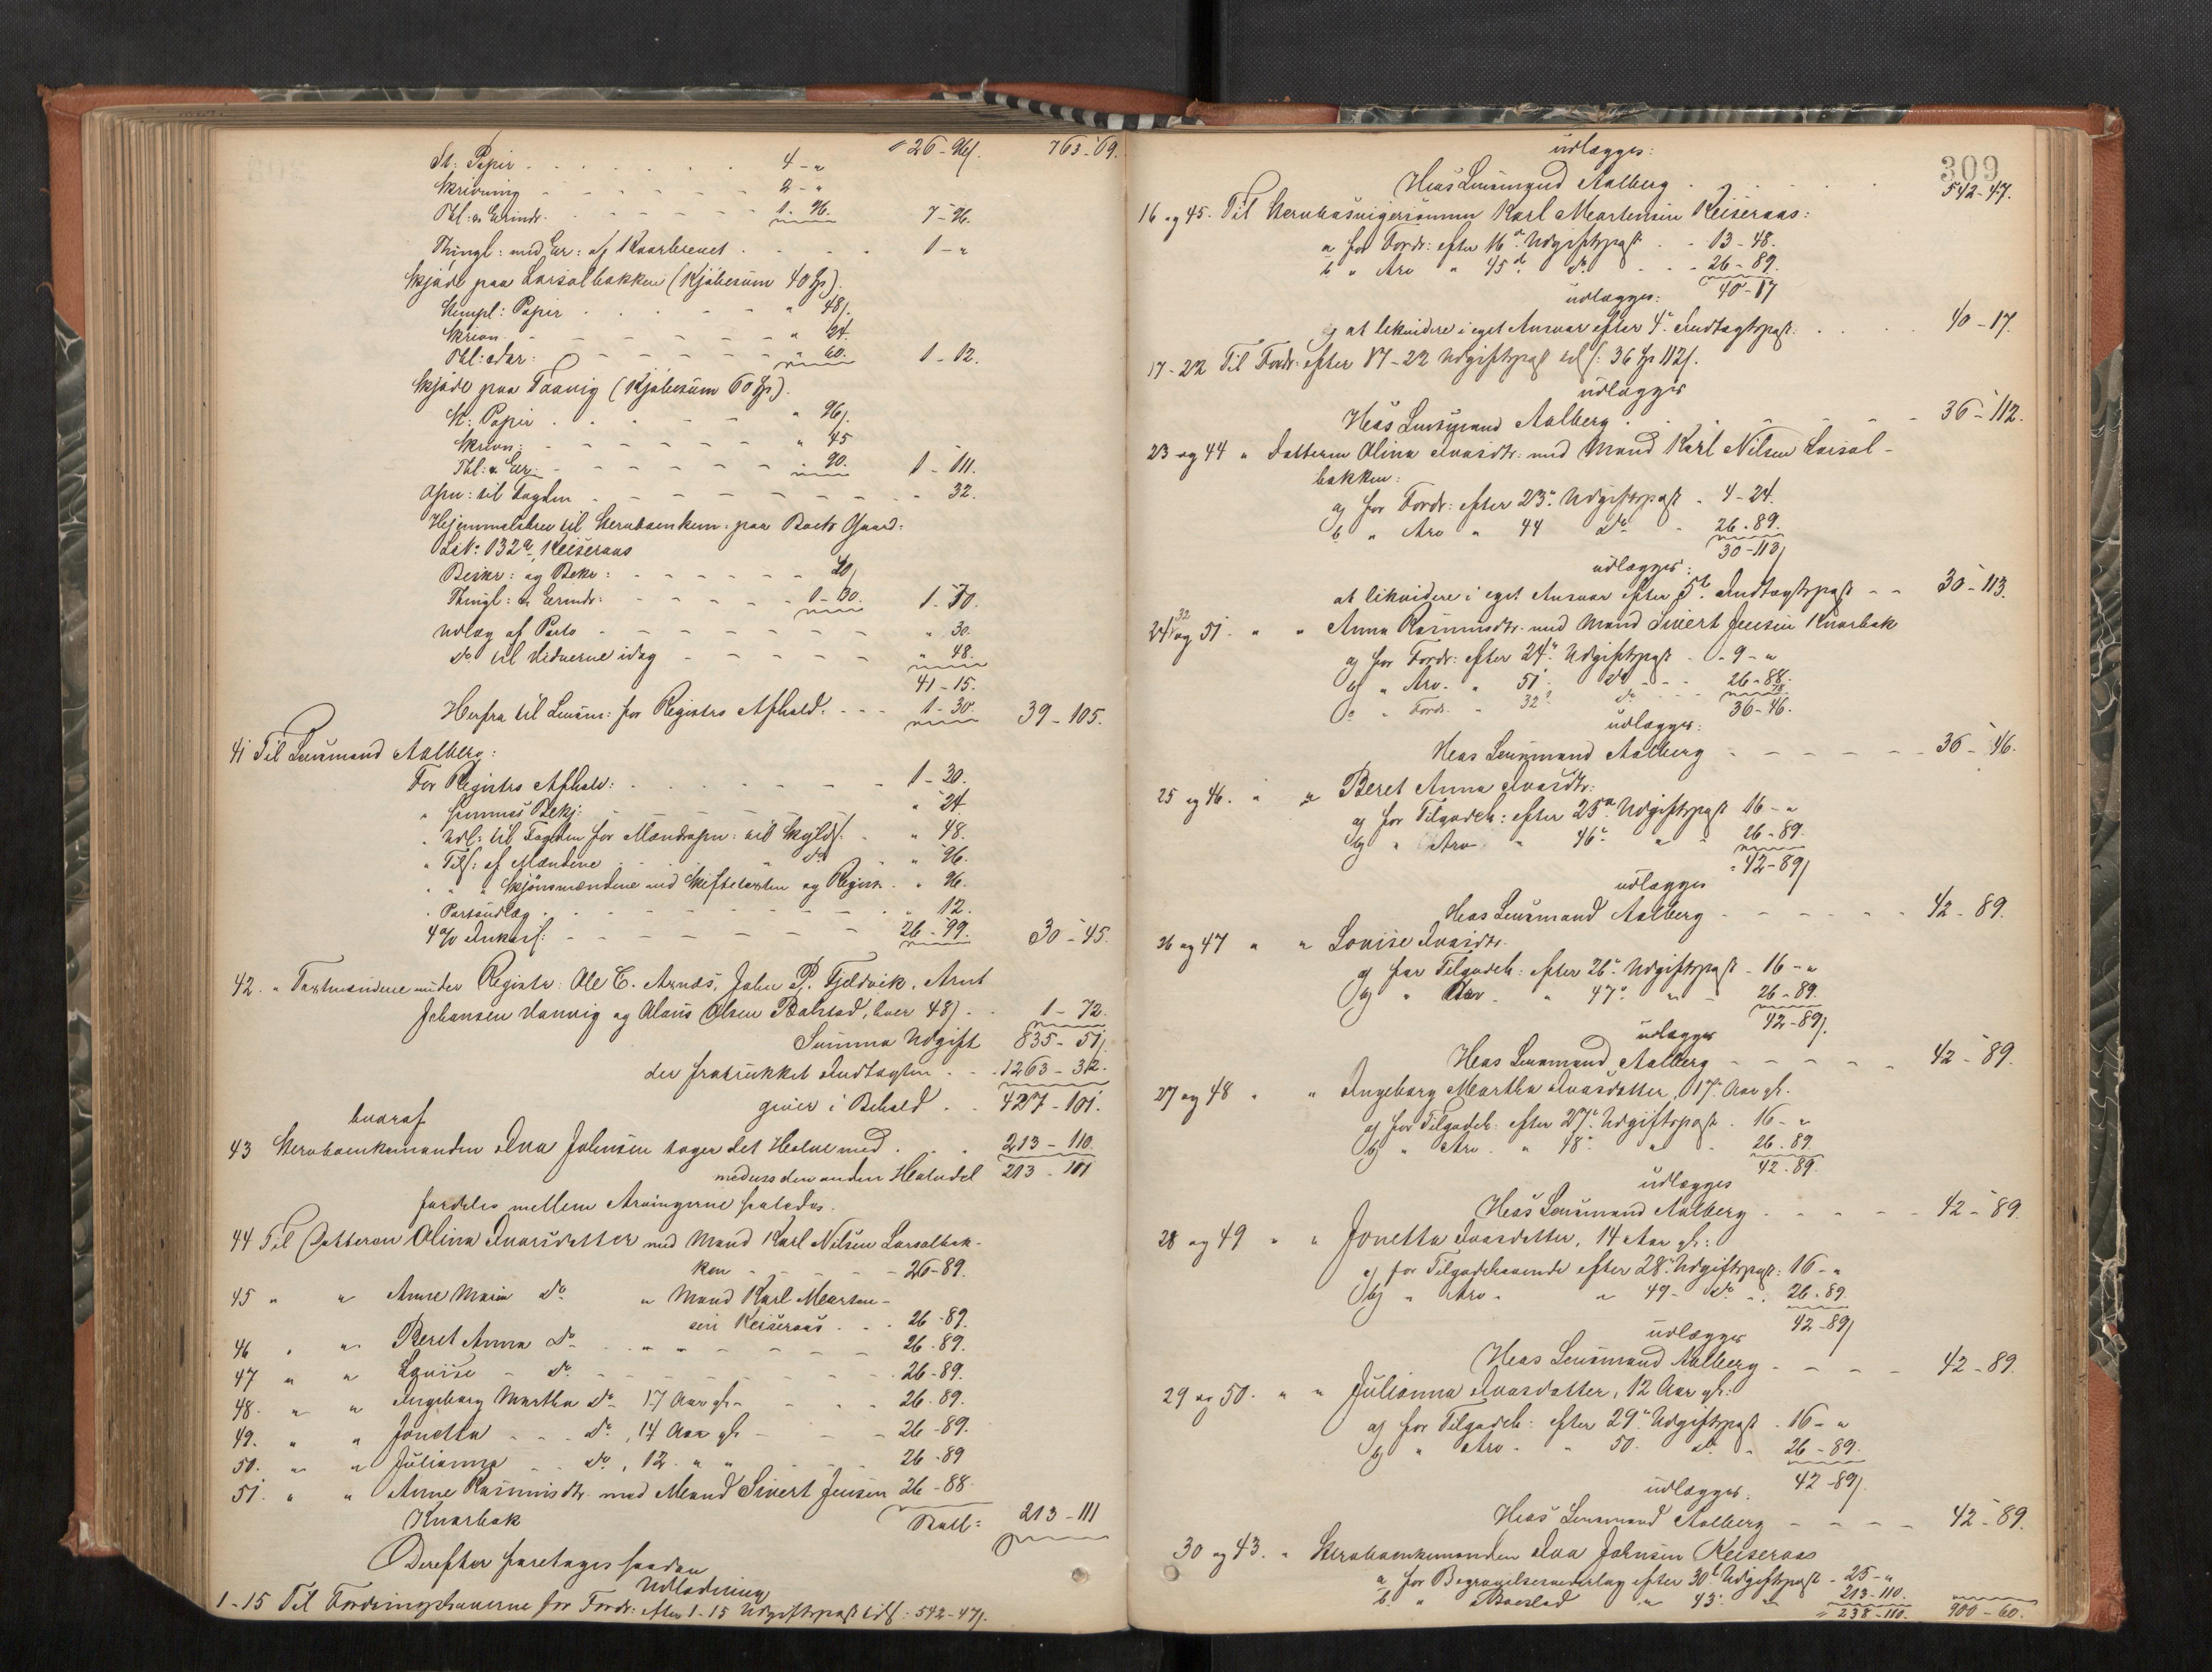 St: Papir . . . . . . 4 - „ „ 26 - 96/. 763 - 69.
Skrivning - - - - - - 2 - „
Thl: & Erindr. - - - - - 1 - 96. 7 - 96.
Thingl: med Er: af Kaarbrevet . . . . 1 - „
Skjøde paa Larsalbakken (Kjøbesum 40 Sp).
Stempl: Papir . . . . . „ 48/.
Skrivn. - - - - - „ 24.
Thl: & Er: - - - - - „ 60. 1 - 12.
Skjøde paa Taavig (Kjøbesum 60 Sp).
St: Papir . . . . . „ 96/.
Skrivn: - - - - - „ 45
Thl: & Er: - - - - - „ 90. 1 - 111.
Opn: til Fogden - - - - - - - „ 32.
Hjemmelsbrev til Stervboenkem: paa Boets Gaard:
LNo 132a, Keiseraas
Beskr: og Bekr: - - - - - 40/
Thingl: & Erindr: - - - - 1 - 30. 1 - 70.
Udlæg af Porto - - - - - - „ 30.
do til Vidnerne idag - - - - - „ 48.
41 - 15.
Herfra til Lensm: for Registrs Afhold. - - - 1 - 30. 39 - 105.
41 Til Lensmand Aalberg:
For Registrs Afhold: . . . . . . 1 - 30.
„ sammes Bekj: - - - - - „ 24
„ Udl: til Fogden for Mændsopn: til Skyldf: . „ 48.
„ Tils: af Mændene . . . do . „ 96.
„ „ Skjönsmændene ved Skiftetaxten og Registr. . „ 96.
„ Portoudlæg . - - - - - - „ 12.
4 % Inkass: - - - - - - 26 - 99. 30 - 45.
42. „ Taxtmændene under Registr: Ole C. Arnøs, John P. Fjeldvik, Arnt
Johansen Vanvig og Olaus Olsen Balstad, hver 48/. . 1 - 72.
Summa Udgift 835 - 51/
der fratrukket Indtægten . . . 1263 - 32.
giver i Behold . . 427 - 101.
hvoraf
43 Stervboenkemanden Ivar Johnsen tager det Halve med . . . 213 - 110.
medens den anden Halvdel 213 - 111
fordeles mellem Arvingerne saaledes.
44 Til Datteren Olina Ivarsdatter med Mand Karl Nilsen Larsalbak-
ken - - - - - 26 - 89.
45 „ „ Anne Maria do „ Mand Karl Morten-
sen Keiseraas . . . 26 - 89.
46 „ „ Beret Anna do . . . 26 - 89.
47 „ „ Lovise - do - - - 26 - 89.
48. „ „ Ingeborg Martha do - 17 Aar gl. - - . . 26 - 89.
49. „ „ Jonetta - - do , 14 Aar gl - - 26 - 89.
50. „ „ Julianna . . do , 12 „ „ - - 26 - 89
51. „ „ Anne Rasmusdtr. med Mand Sivert Jensen 26 - 88.
Knarbak Boell: 213 - 111
Derefter foretoges saadan
Udlodning
1-15 Til Fordringshaverne for Fordr: efter 1-15 Udgiftspost tils: 542 - 47/.
309
udlægges:
Hos Lensmand Aalberg . . . . . . 542 - 47.
16 og 45. Til Stervbosvigersønnen Karl Mortensen Keiseraas:
a for Fordr: efter 16de Udgiftspost . - 13 - 48.
b „ Arv „ 45de do . . - 26 - 89.
udlægges: 40 - 17
at likvidere i eget Ansvar efter 4de Indtægtspost. . . . 40 - 17.
17-22 Til Fordr: efter 17-22 Udgiftspost tils: 36 Sp 112/.
udlægges
Hos Lensmand Aalberg . . - - - - 36 - 112.
23 og 44 „ Datteren Olina Ivarsdtr: med Mand Karl Nilsen Larsal-
bakken:
a) for Fordr: efter 23de Udgiftspost . 4 - 24.
b „ Arv „ 44 do - 26 - 89.
30 - 113/
udlægges:
at likvidere i eget Ansvar efter 5te Indtægtspost - - 30 - 113.
24, 32 og 51. „ „ Anna Rasmusdtr. med Mand Sivert Jensen Knarbak
a) for Fordr: efter 24de Udgiftspost - - 9 - „
b) „ Arv. „ 51 do - - - 26 - 88.
c „ Fordr. „ 32 do - - - 78.
36 - 46.
udlægges:
Hos Lensmand Aalberg - - - - - - 36 - 46.
25 og 46. „ „ Beret Anna Ivarsdtr:
a) for Tilgodeh: efter 25de Udgiftspost 16 - „
b) „ Arv „ 46de „ „ 26 - 89.
42 - 89/
udlægges
Hos Lensmand Aalberg - - - - - 42 - 89.
26 og 47 „ „ Lovise Ivarsdtr.
a) for Tilgodeh: efter 26de Udgiftspost - 16 - „
b) „ Arv . „ 47de „ - 26 - 89.
udlægges 42 - 89/.
Hos Lensmand Aalberg - - - - - 42 - 89.
27 og 48 „ „ Ingeborg Martha Ivarsdatter, 17 Aar gl.
a) for Tilgodeh: efter 27de Udgiftspost . 16 - „
b) „ Arv . „ 48de „ . 26 - 89
42 - 89.
udlægges
Hos Lensmand Aalberg . . - - - 42 - 89.
28 og 49 „ „ Jonetta Ivarsdatter, 14 Aar gl:
a) for Tilgodehavende efter 28de Udgiftspost: 16 - „
b) „ Arv . „ 49 - do . . 26 - 89.
udlægges 42 - 89/
Hos Lensmand Aalberg - - - - 42 - 89.
29 og 50. „ „ Julianna Ivarsdatter, 12 Aar gl:
a) for Tilgodeh: efter 29de Udgiftspost . 16 - „
b) „ Arv . „ 50. do „ 26 - 89.
udlægges: 42 - 89/.
Hos Lensmand Aalberg - - - - 42 - 89.
30 og 43. „ Stervboenkemanden Ivar Johnsen Keiseraas
a for Begravelsesvederlag efter 30te Udgiftspost - 25 - „
b „ Boeslod „ 43de „ 213 - 110.
„ 238 - 110. 900 - 60.